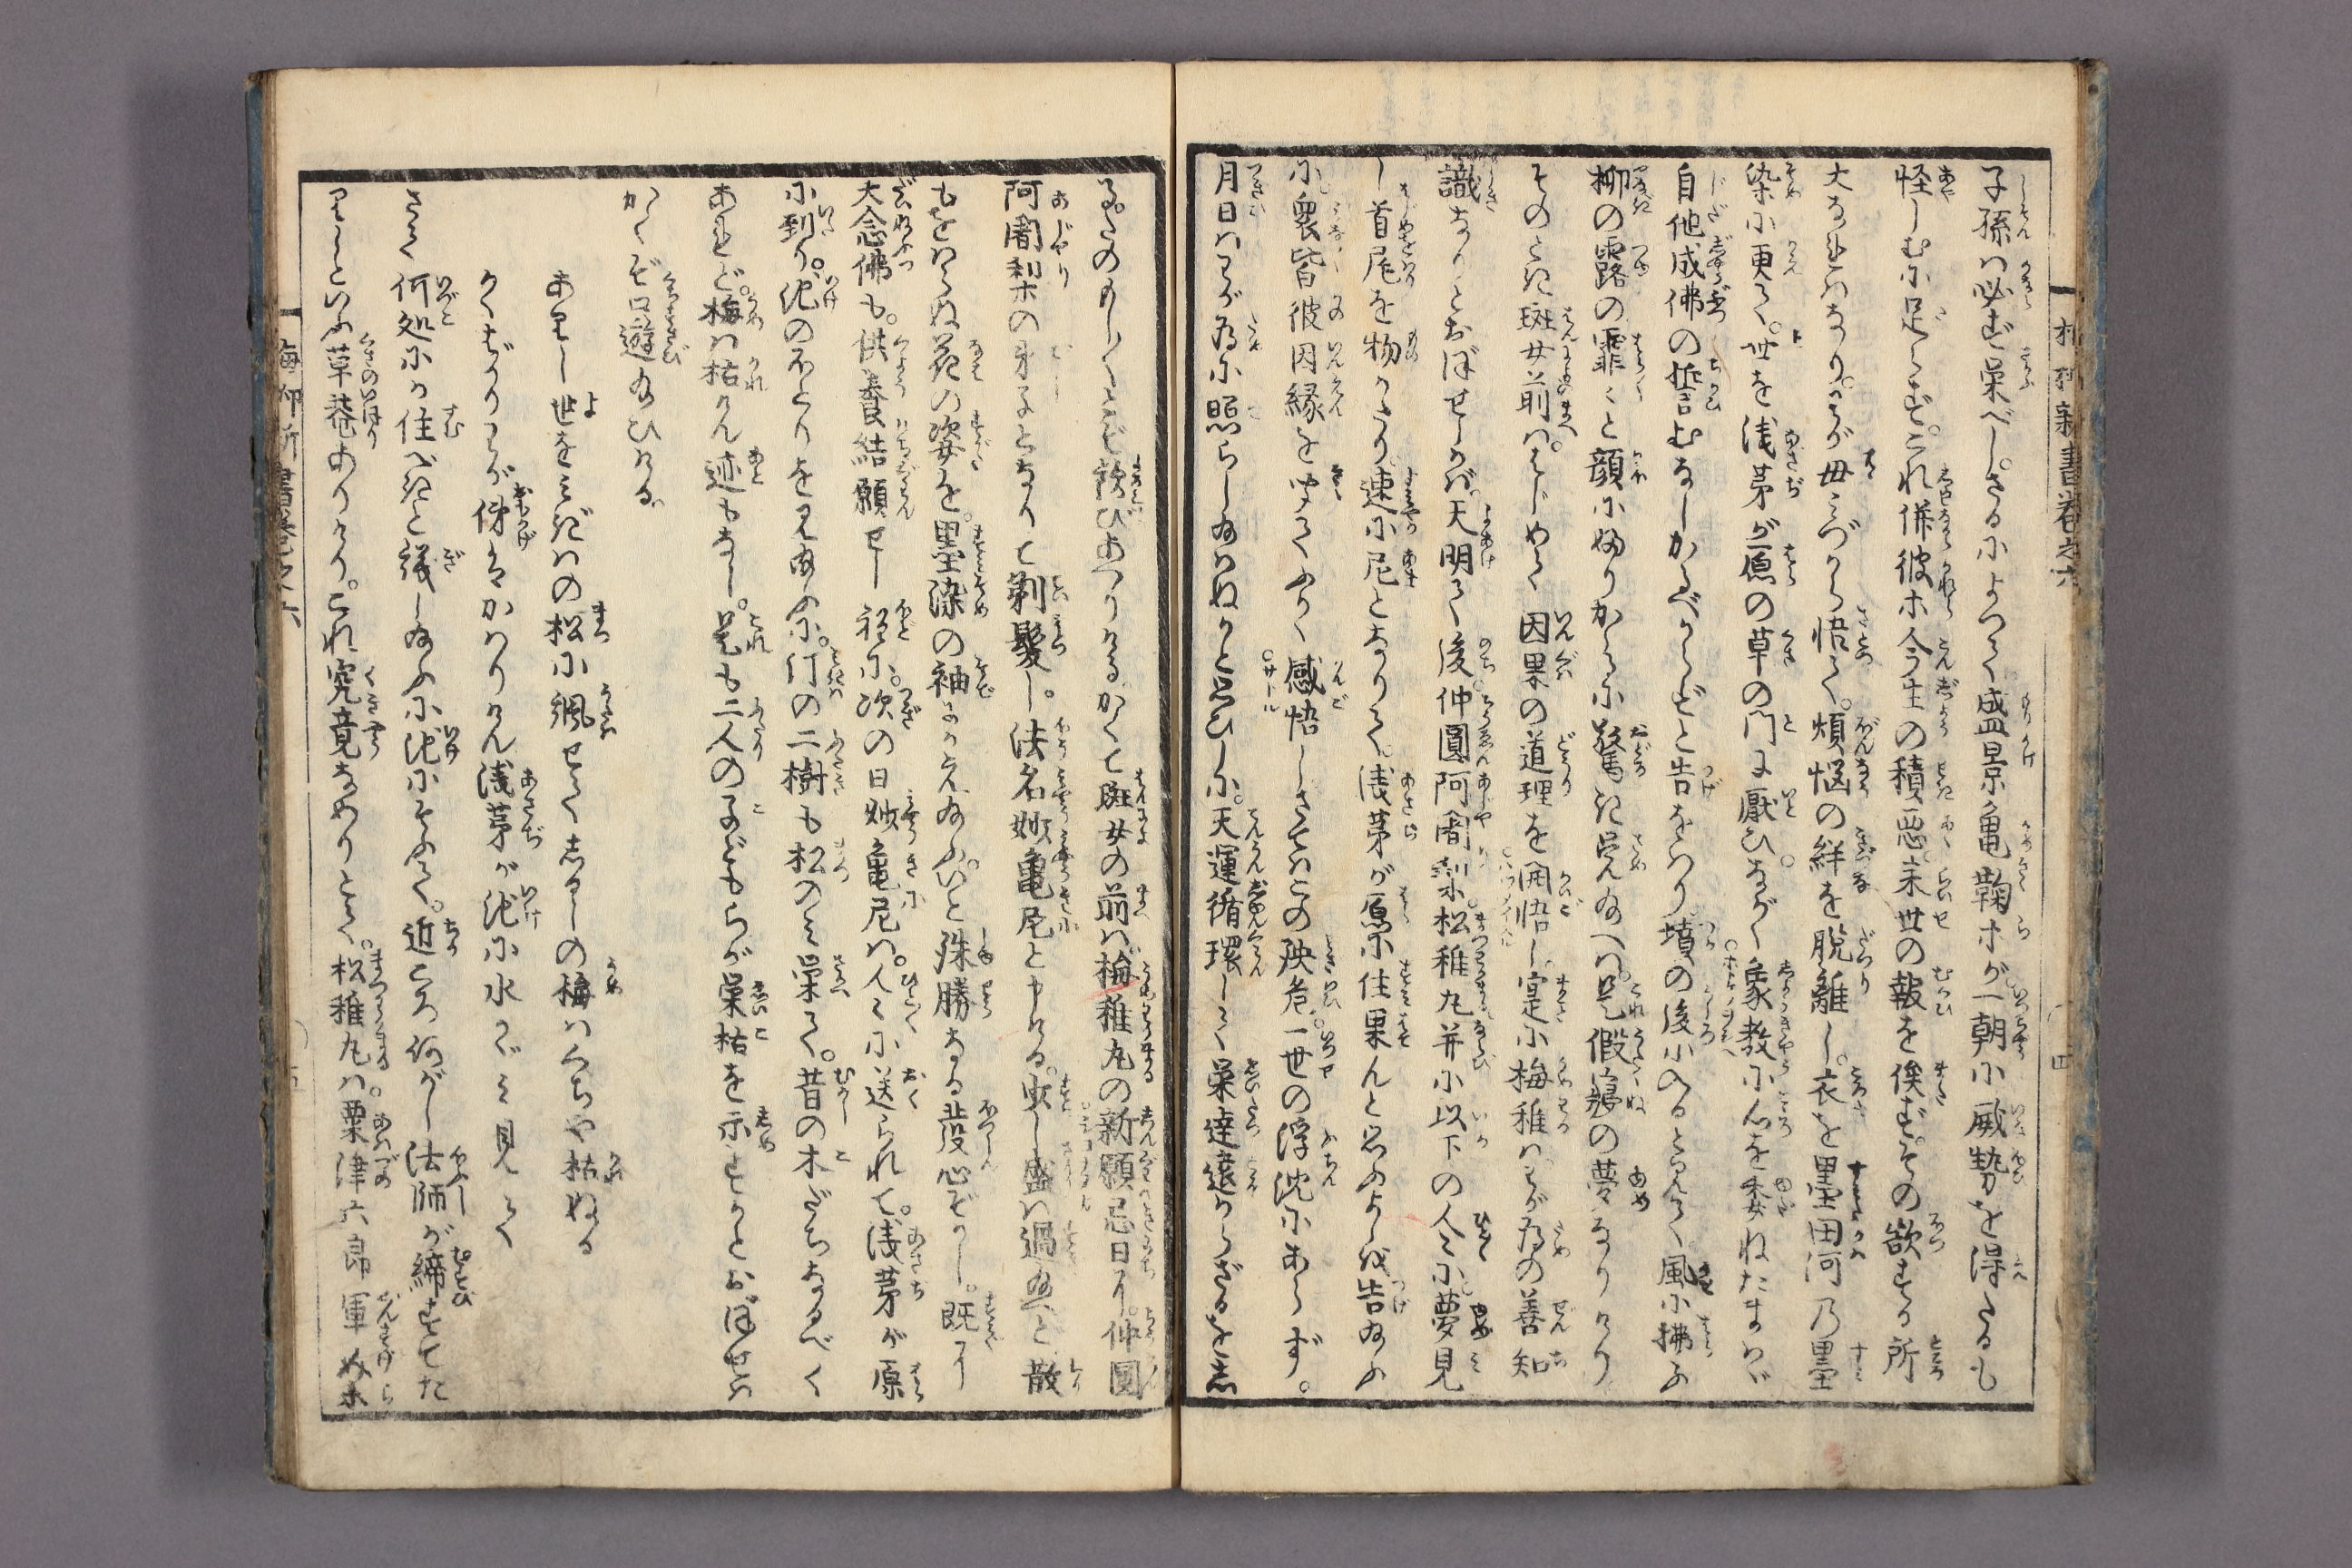 子孫は必ず栄べし。さるによつて盛景亀鞠ホが一朝に威勢を得たるも
怪しむに足らず。これ併彼ホ今生の積悪。来世の報を俟ず。その欲する所
大なればなり。わが母みづから悟て。煩悩の絆を脱離し。衣を墨田河の墨
染に更て。世を浅茅が原の草の門に厭ひ。ながく象教に心を委ねたまはゞ
自他成佛の誓むなしかるべからずと告をはり。墳の後に入ると見て。風に拂ふ
柳の露の霏々と顔にふりかゝるに驚き覚給へば。是假寝の夢なりけり
そのとき斑女前は。はじめて因果の道理を開悟し。寔に梅稚はわが為の善知
識なりとおぼせしかば。天明て後仲圓阿闍梨。松稚丸并に以下の人々に。夢見
し首尾を物かたり。速に尼となりて。浅茅が原に住果んと思ふよしを告給ふ
に衆皆彼因縁を聞てふかく感悟し。さてはこの殃危。一世の浮沈にあらず。
月日はわが為に照らし給はぬかと思ひしに。天運循環して栄達遠からざるを志
るものゝしくとぞ歓びあへりける。かくて斑女の前は。梅稚丸の新願忌日に。仲圓
阿闍梨の弟子となりて剃髪し。法名妙亀尼と申ける。現し盛は過給へど散
もをはらぬ花の姿を。墨染の袖にかえ給ふ。いと殊勝なる發心ぞかし。既に
大念佛も。供養結願せし程に。次の日妙亀尼は。人々に送られて。浅茅が原
に到り。池のほとりを見給ふに。汀の二樹も松のみ栄て。昔の木だちなるべく
あれど。梅は枯けん迹もなし。是も二人の子どもらが栄枯を示すかとおぼせば
かくぞ口遊給ひける。
ありし世をみぎはの松に颯せてしるしの梅はくちや枯ぬる
かくばかりわが俤はかはりけん浅茅が池に水かゞ見て
さて何処にか住べきと議し給ふに池にそふて。近ころ何がし法師が締すてた
りしといふ草菴ありけり。これ究竟なめりとて。松稚丸は。粟津六郎軍介ホ